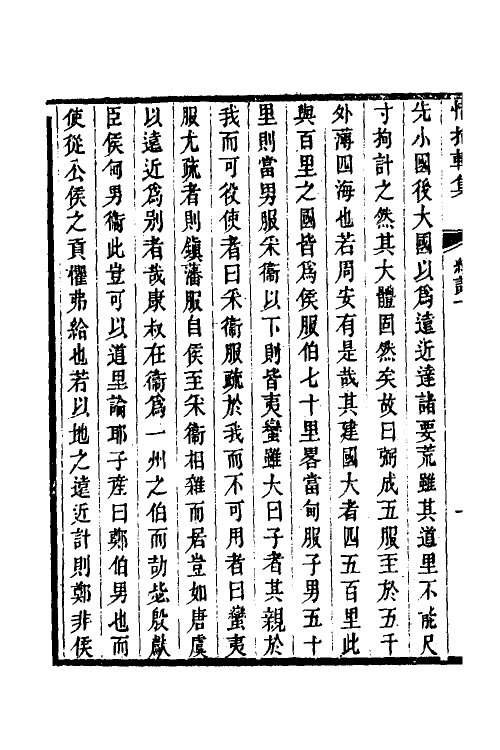 先小國後大國以爲遠近達諸要荒雖其道里不能尺
寸拘計之然其大體固然矣故曰弼成五服至於五千
外薄四海也若周安有是哉其建國大者四五百里此
與百里之國皆爲侯服伯七十里畧當甸服子男五十
里則當男服采衞以下則皆夷蠻雖大曰子者其親於
我而可役使者曰采衞服疏於我而不可用者曰蠻夷
服尤疏者則鎭藩服自侯至采衞相雜而居豈如唐虞
以遠近爲别者哉康叔在衞爲一州之伯而劼毖殷獻
臣侯甸男衞此豈可以道里論耶子産曰鄭伯男也而
使從公侯之貢懼弗給也若以地之遠近計則鄭非侯